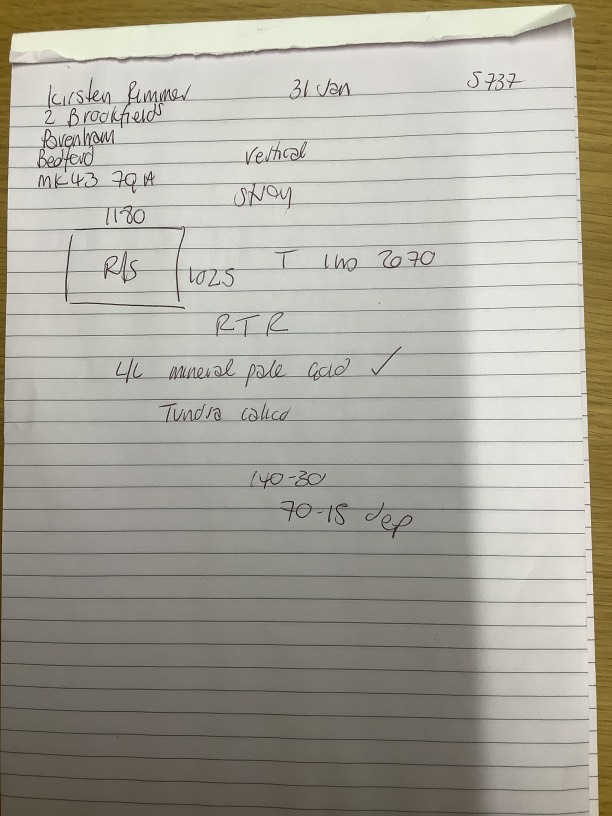 Kirsten Rimmer 31 Jan S737
2 Brookfields
Pavenham
Bedford
MK43 7QA
Vertical
1180
R/S 1025 T 2070
RTR
L/L mineral pale gold ✓
Tundra calico
140-30
70-15 dep